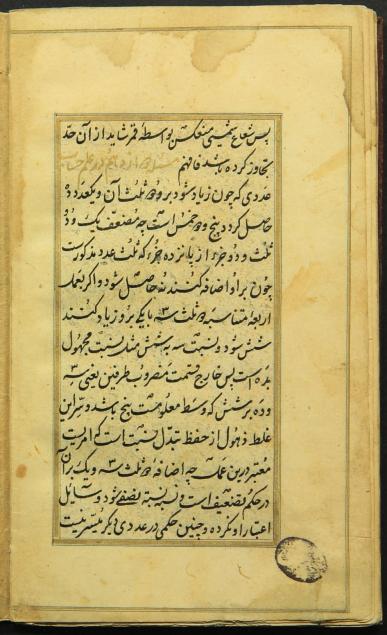 پس شعاع شمسی منعکس بواسطهٔ قمر شاید از آن حد
تجاوز کرده باشد فافهم
عددی که چون زیاد شود برو دو ثلث آن و یکعدد ده
حاصل کردد پنج و دو خمس است چه مضعف یک و دو
ثلث و دو جزء از پانزده جزء که ثلث عدد مذکورست
چون براو اضافه کنند نه حاصل شود و اکر بعمل
اربعهٔ متناسبه دو ثلث ۳ با یکی برو زیاد کنند
شش شود و نسبت سه به شش مثل نسبت مجهول
بده است پس خارج قسمت مضروب طرفین یعنی ۳
و ده بر شش که وسط معلومست پنج باشد و سر این
غلط ذهول از حفظ تبدل نسبتاست که امریست
معتبر درین عمل چه اضافه دو ثلث ۳ و یک بر آن
در حکم تضعیف است و نسبه نسبة نصفی شود و سائل
اعتبار او نکرده و چنین حکمی در عددی دیکر میسر نیست